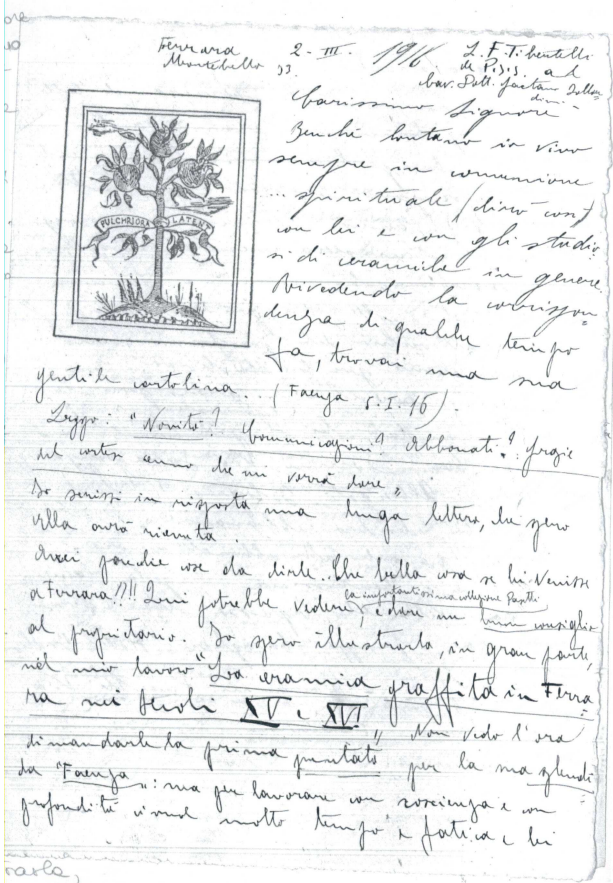 Ferrara
Montebello
33.
2 - III. 1916
L. F. Tibertelli
de Pisis. ad
Cav. Dott. Gaetano Ballar
dini
Carissimo Signore
Benché lontano io vivo
sempre in comunione
... spirituale (dirò così)
con lei e con gli studio
si di ceramiche in genere.
Rivedendo la corrispon
denza di qualche tempo
fa, trovai una sua
PULCHRIORA LATENT
gentile cartolina.. (Faenza 5. I. 16).
Leggo: "Novità? Comunicazioni? Abbonati? Grazie
del cortese cenno che mi vorrà dare"
Io scrissi in risposta una lunga lettera, che spero
Ella avrà ricevuta.
Avrei parecchie cose da dirle.. Che bella cosa se lei venisse
a Ferrara!!!! Quivi potrebbe vedere, la importantissima collezione Pasetti e dare un buon consiglio
al proprietario. Io spero illustrarla, in gran parte,
nel mio lavoro "La ceramica graffita in Ferra
ra nei secoli XV e XVI" Non vedo l'ora
di mandarle la prima puntata per la sua splendi
da "Faenza": ma per lavorare con coscienza e con
profondità ci vuol molto tempo e fatica e lei